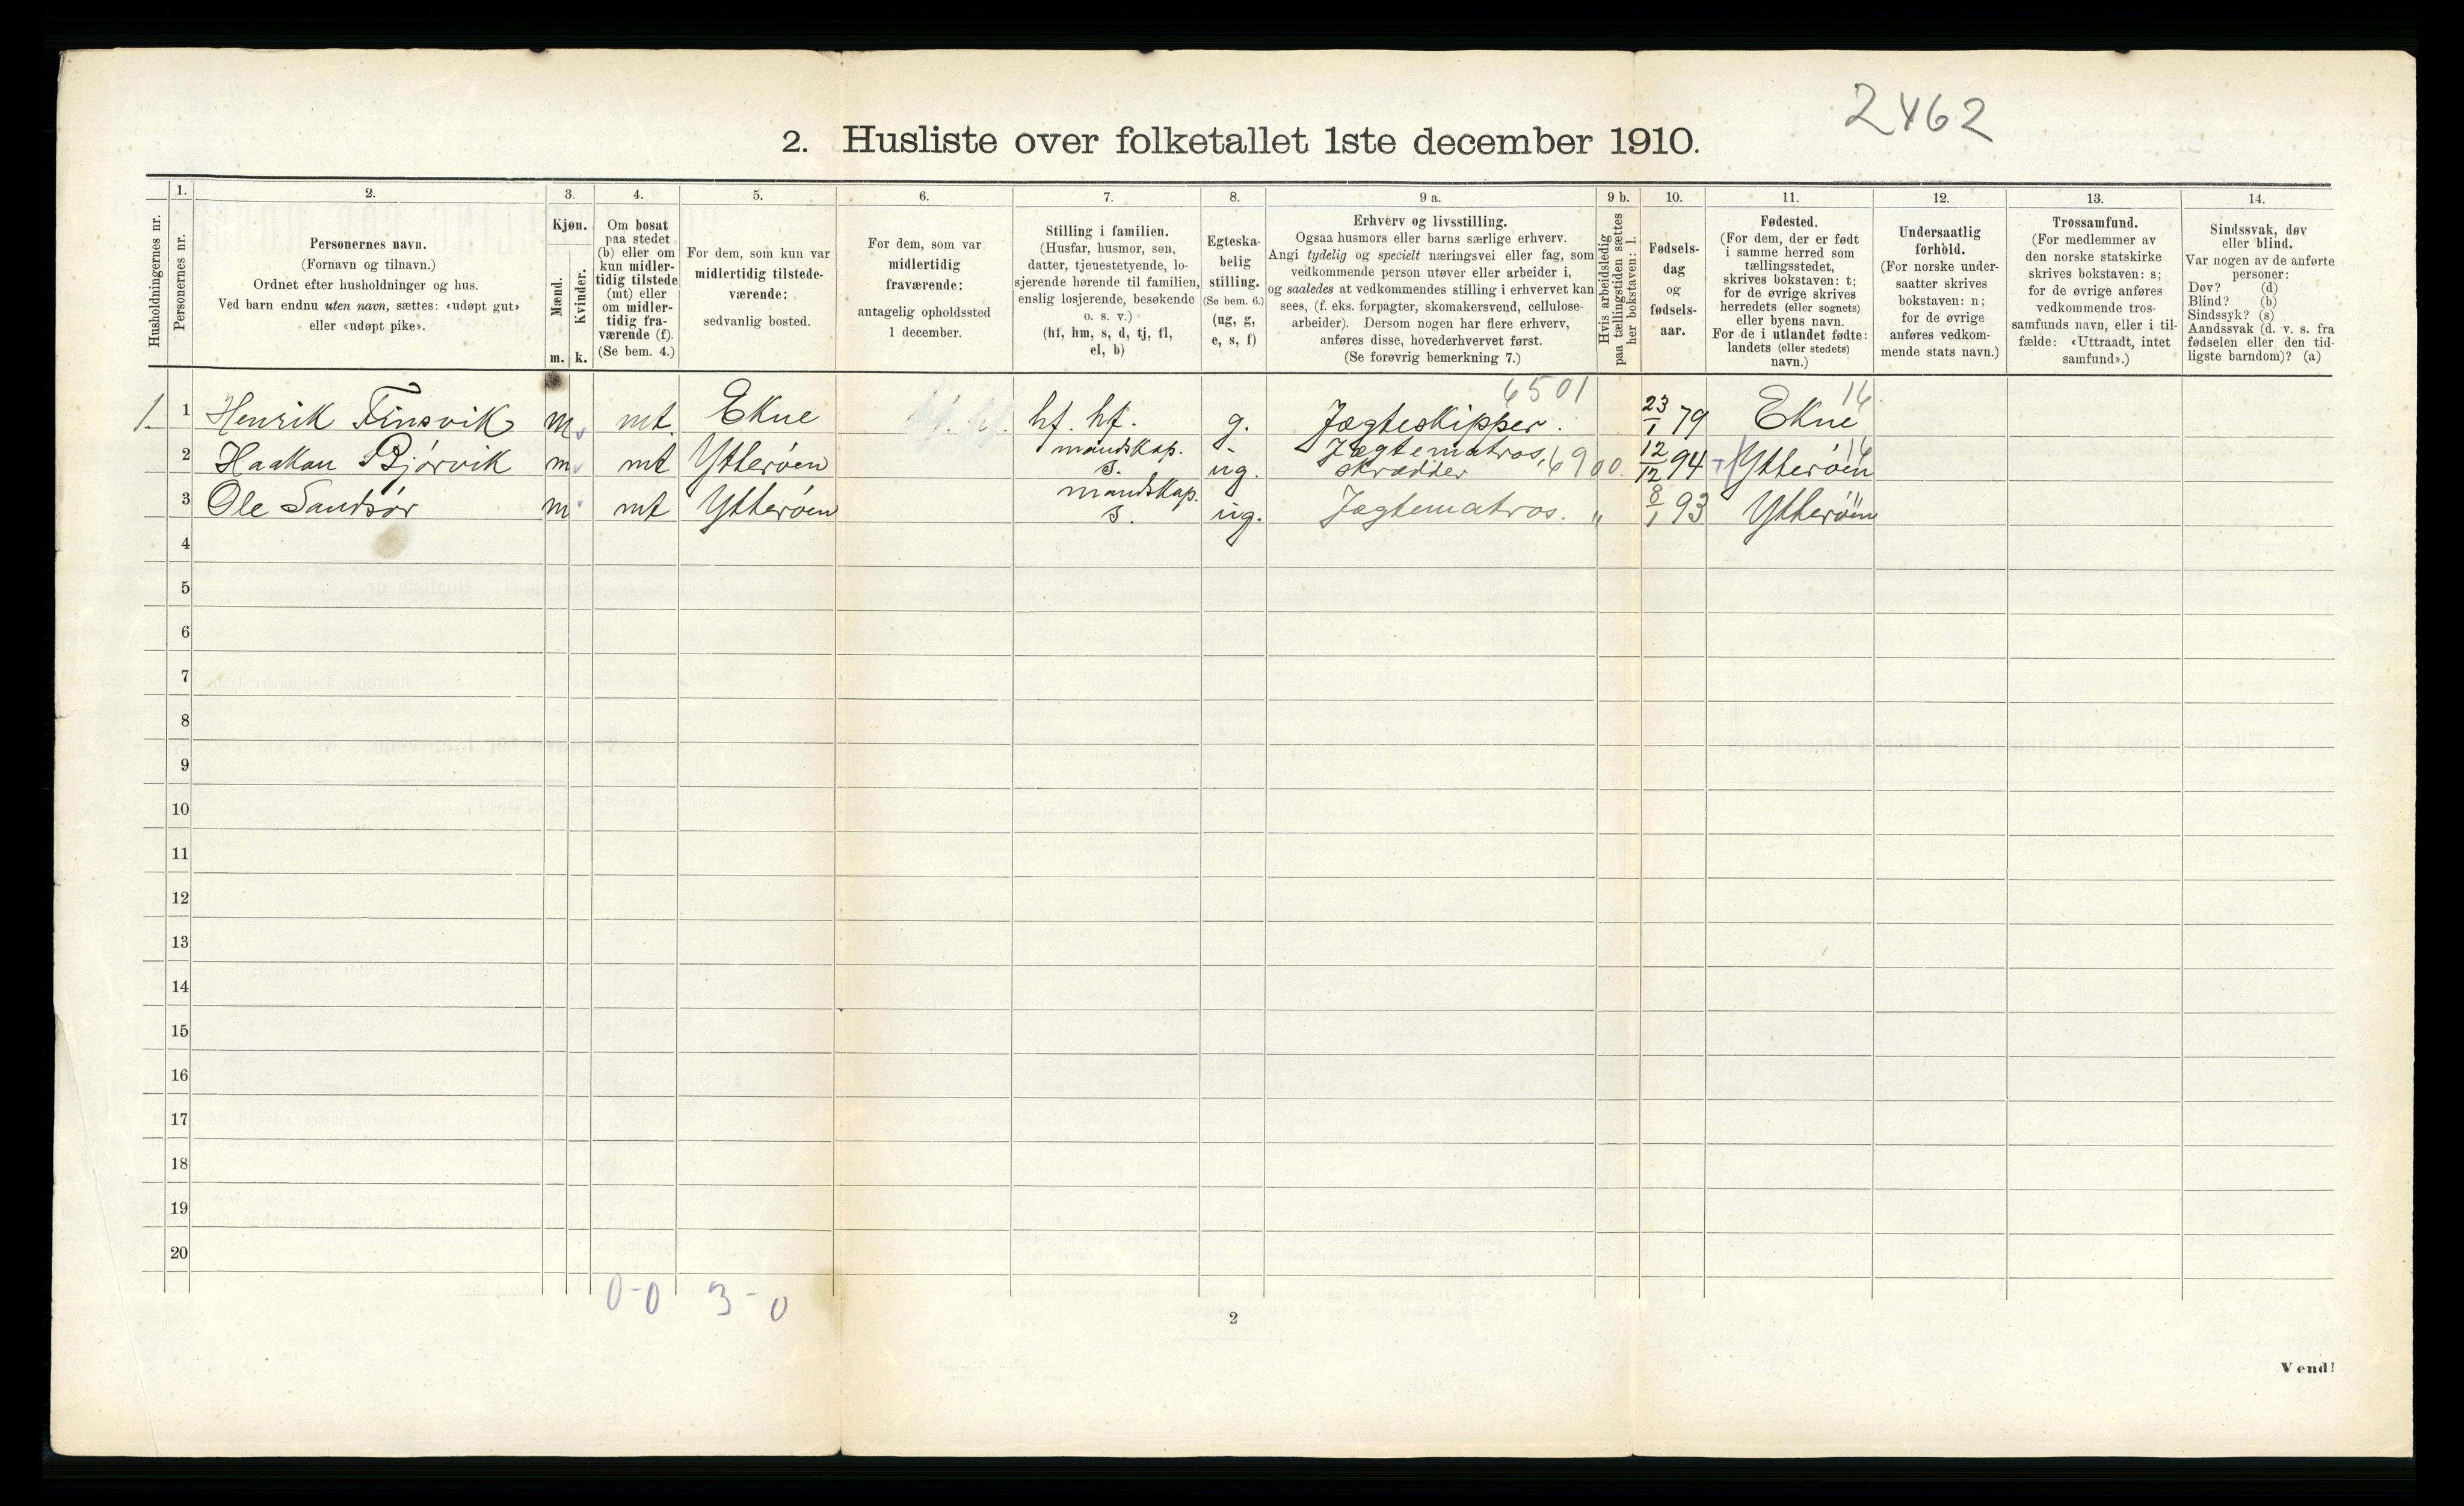 2462
2. Husliste over folketallet 1ste december 1910.
Husholdningernes nr.
1.
Personernes nr.
2.
Personernes navn.
(Fornavn og tilnavn.)
Ordnet efter husholdninger og hus.
Ved barn endnu uten navn, sættes: «udøpt gut»
eller «udøpt pike».
3.
Kjøn.
Mænd.
Kvinder.
m. k.
4.
Om bosat
paa stedet
(b) eller om
kun midler-
tidig tilstede
(mt) eller
om midler-
tidig fra-
værende (f).
(Se bem. 4.)
5.
For dem, som kun var
midlertidig tilstede-
værende:
sedvanlig bosted.
6.
For dem, som var
midlertidig
fraværende:
antagelig opholdssted
1 december.
7.
Stilling i familien.
(Husfar, husmor, søn,
datter, tjenestetyende, lo-
sjerende hørende til familien,
enslig losjerende, besøkende
o. s. v.)
(hf, hm, s, d, tj, fl,
el, b)
8.
Egteska-
belig
stilling.
(Se bem. 6.)
(ug, g,
e, s, f)
9 a.
Erhverv og livsstilling.
Ogsaa husmors eller barns særlige erhverv.
Angi tydelig og specielt næringsvei eller fag, som
vedkommende person utøver eller arbeider i,
og saaledes at vedkommendes stilling i erhvervet kan
sees, (f. eks. forpagter, skomakersvend, cellulose-
arbeider). Dersom nogen har flere erhverv,
anføres disse, hovederhvervet først.
(Se forøvrig bemerkning 7.)
9 b.
Hvis arbeidsledig
paa tællingstiden sættes
her bokstaven: l.
10.
Fødsels-
dag
og
fødsels-
aar.
11.
Fødested.
(For dem, der er født
i samme herred som
tællingsstedet,
skrives bokstaven: t;
for de øvrige skrives
herredets (eller sognets)
eller byens navn.
For de i utlandet fødte:
landets (eller stedets)
navn.)
12.
Undersaatlig
forhold.
(For norske under-
saatter skrives
bokstaven: n;
for de øvrige
anføres vedkom-
mende stats navn.)
13.
Trossamfund.
(For medlemmer av
den norske statskirke
skrives bokstaven: s;
for de øvrige anføres
vedkommende tros-
samfunds navn, eller i til-
fælde: «Uttraadt, intet
samfund».)
14.
Sindssvak, døv
eller blind.
Var nogen av de anførte
personer:
Døv? (d)
Blind? (b)
Sindssyk? (s)
Aandssvak (d. v. s. fra
fødselen eller den tid-
ligste barndom)? (a)
6501 16
1. 1 Henrik Finsvik m mt. Ekne hf. hf. g. Jægteskipper. 23/1 79 Ekne
mandskap. Jægtematros, 6900. 16
2 Haakan Bjørvik m mt Ytterøen s. ug. skrædder 12/12 94 Ytterøen
mandskap. "
3 Ole Sandsør m mt Ytterøen s. ug. Jægtematros. " 8/1 93 Ytterøen
4
5
6
7
8
9
10
11
12
13
14
15
16
17
18
19
20
0-0 3-0
2
Vend!